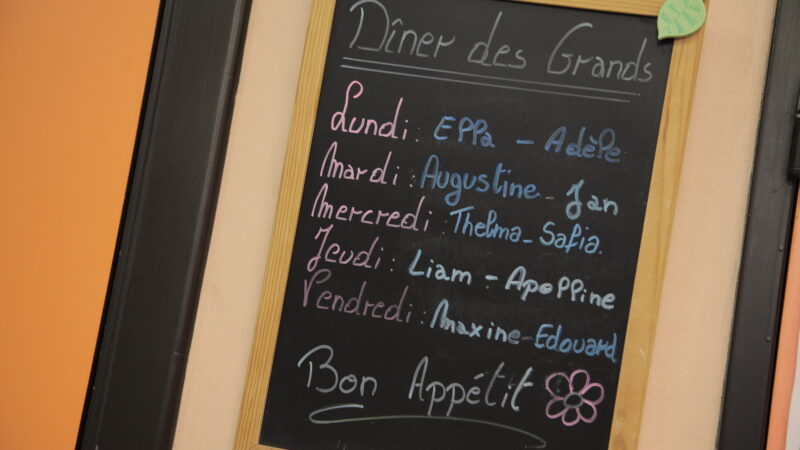 Dîner des Grands
Lundi : Ella - Adèle
Mardi : Augustine - Jan
Mercredi : Thelma - Safia.
Jeudi : Liam - Apolline
Vendredi : Maxine - Edouard
Bon Appétit